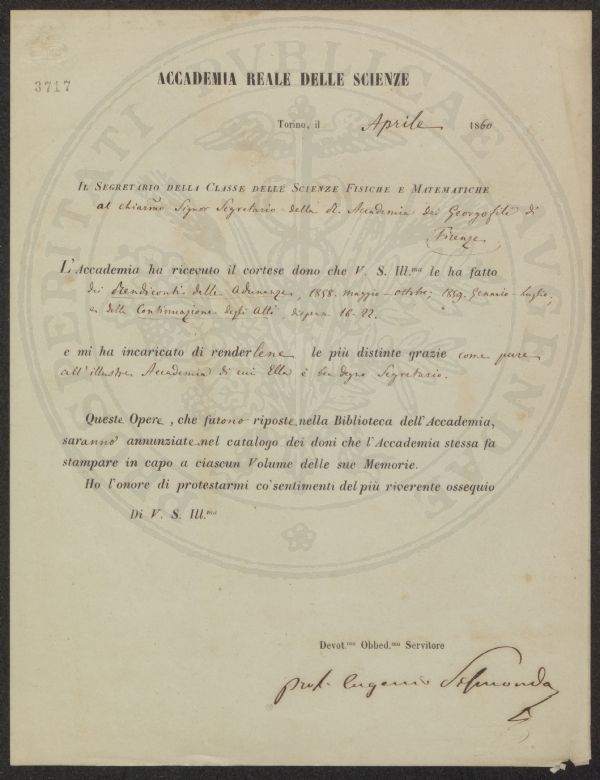 PROSPERITATI PVBLICAE AVGENDAE
3717
ACCADEMIA REALE DELLE SCIENZE
Torino, il Aprile 1860
IL SEGRETARIO DELLA CLASSE DELLE SCIENZE FISICHE E MATEMATICHE
al chiarmo Signor Segretario della R. Accademia dei Georgofili di
Firenze
L'Accademia ha ricevuto il cortese dono che V. S. Ill.ma le ha fatto
dei Rendiconti delle Adunanze, 1858. maggio-ottobre; 1859. Gennaio-luglio;
e della Continuazione degli Atti, dispense 16-22.
e mi ha incaricato di renderlene le più distinte grazie come pure
all'illustre Accademia di cui Ella è ben degno Segretario.
Queste Opere, che furono riposte nella Biblioteca dell'Accademia,
saranno annunziate nel catalogo dei doni che l'Accademia stessa fa
stampare in capo a ciascun Volume delle sue Memorie.
Ho l'onore di protestarmi co' sentimenti del più riverente ossequio
Di V. S. Ill.ma
Devot.mo Obbed.mo Servitore
prof. Eugenio Sismonda